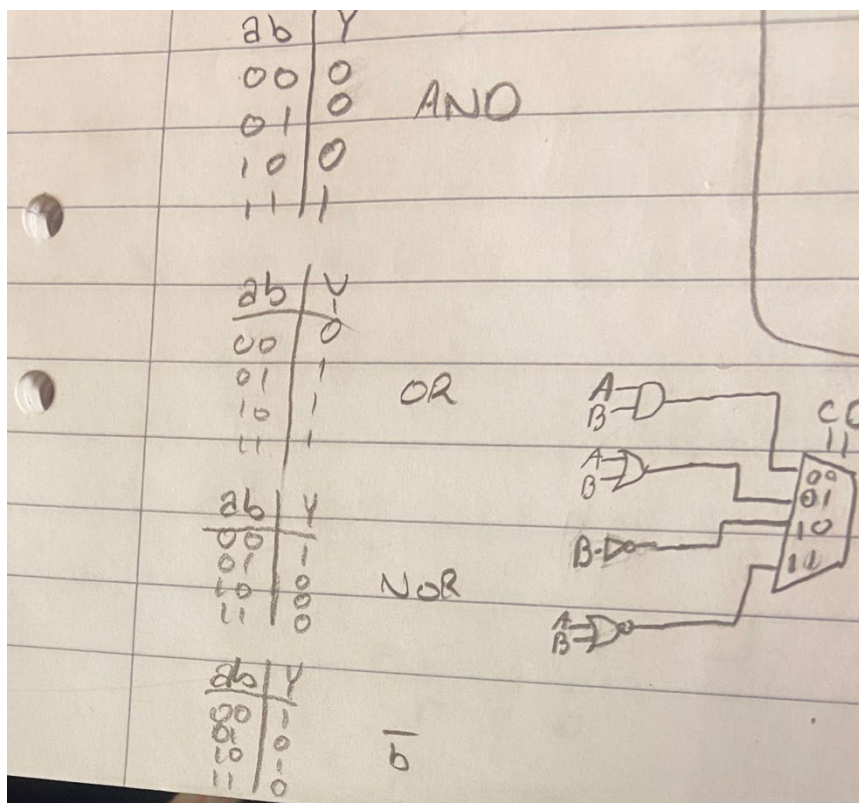 ab Y
00 0
01 0
10 0
11 1
AND
ab Y
00 0
01 1
10 1
11 1
OR
ab Y
00 1
01 0
10 0
11 0
NOR
ab Y
00 1
01 0
10 1
11 0
b̅
A
B
A
B
B
A
B
C
00
01
10
11